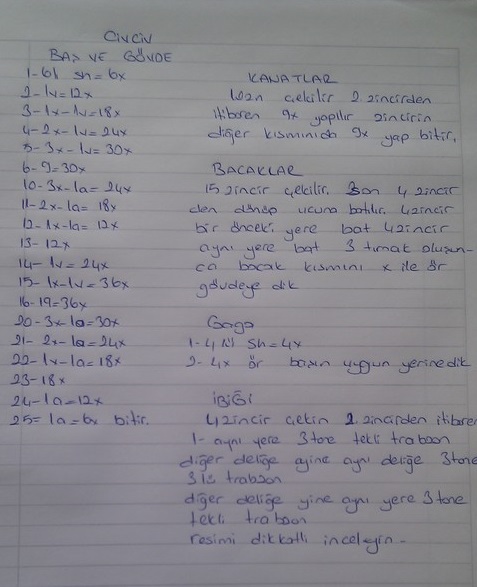 Civciv
BAŞ VE GÖVDE
1- 6lı sh = 6x
2- 1v = 12x
3- 1x-1v = 18x
4- 2x-1v = 24x
5- 3x-1v = 30x
6-9 = 30x
10- 3x-1a = 24x
11- 2x-1a = 18x
12- 1x-1a = 12x
13- 12x
14- 1v = 24x
15- 1x-1v = 36x
16-19 = 36x
20- 3x-1a = 30x
21- 2x-1a = 24x
22- 1x-1a = 18x
23- 18x
24- 1a = 12x
25= 1a = 6x bitir.
KANATLAR
çekilir 2. zincirden
itibaren 9x yapılır zincirin
diğer kısmınıda 9x yap bitir.
BACAKLAR
15 zincir çekilir. Son 4 zincir
den dönüp ucuna batılır. 4zincir
bir önceki yere bat 4zincir
aynı yere bat 3 tırnak oluşun-
ca bacak kısmını x ile ör
gövdeye dik
Gaga
1- 4 lü sh = 4x
2- 4x ör başın uygun yerine dik
İBİĞİ
4zincir çekin 2. zincirden itibaren
1- aynı yere 3 tane tekli trabzan
diğer deliğe yine aynı deliğe 3 tane
3 lü trabzan
diğer deliğe yine aynı yere 3 tane
tekli trabzan
resimi dikkatli inceleyin-